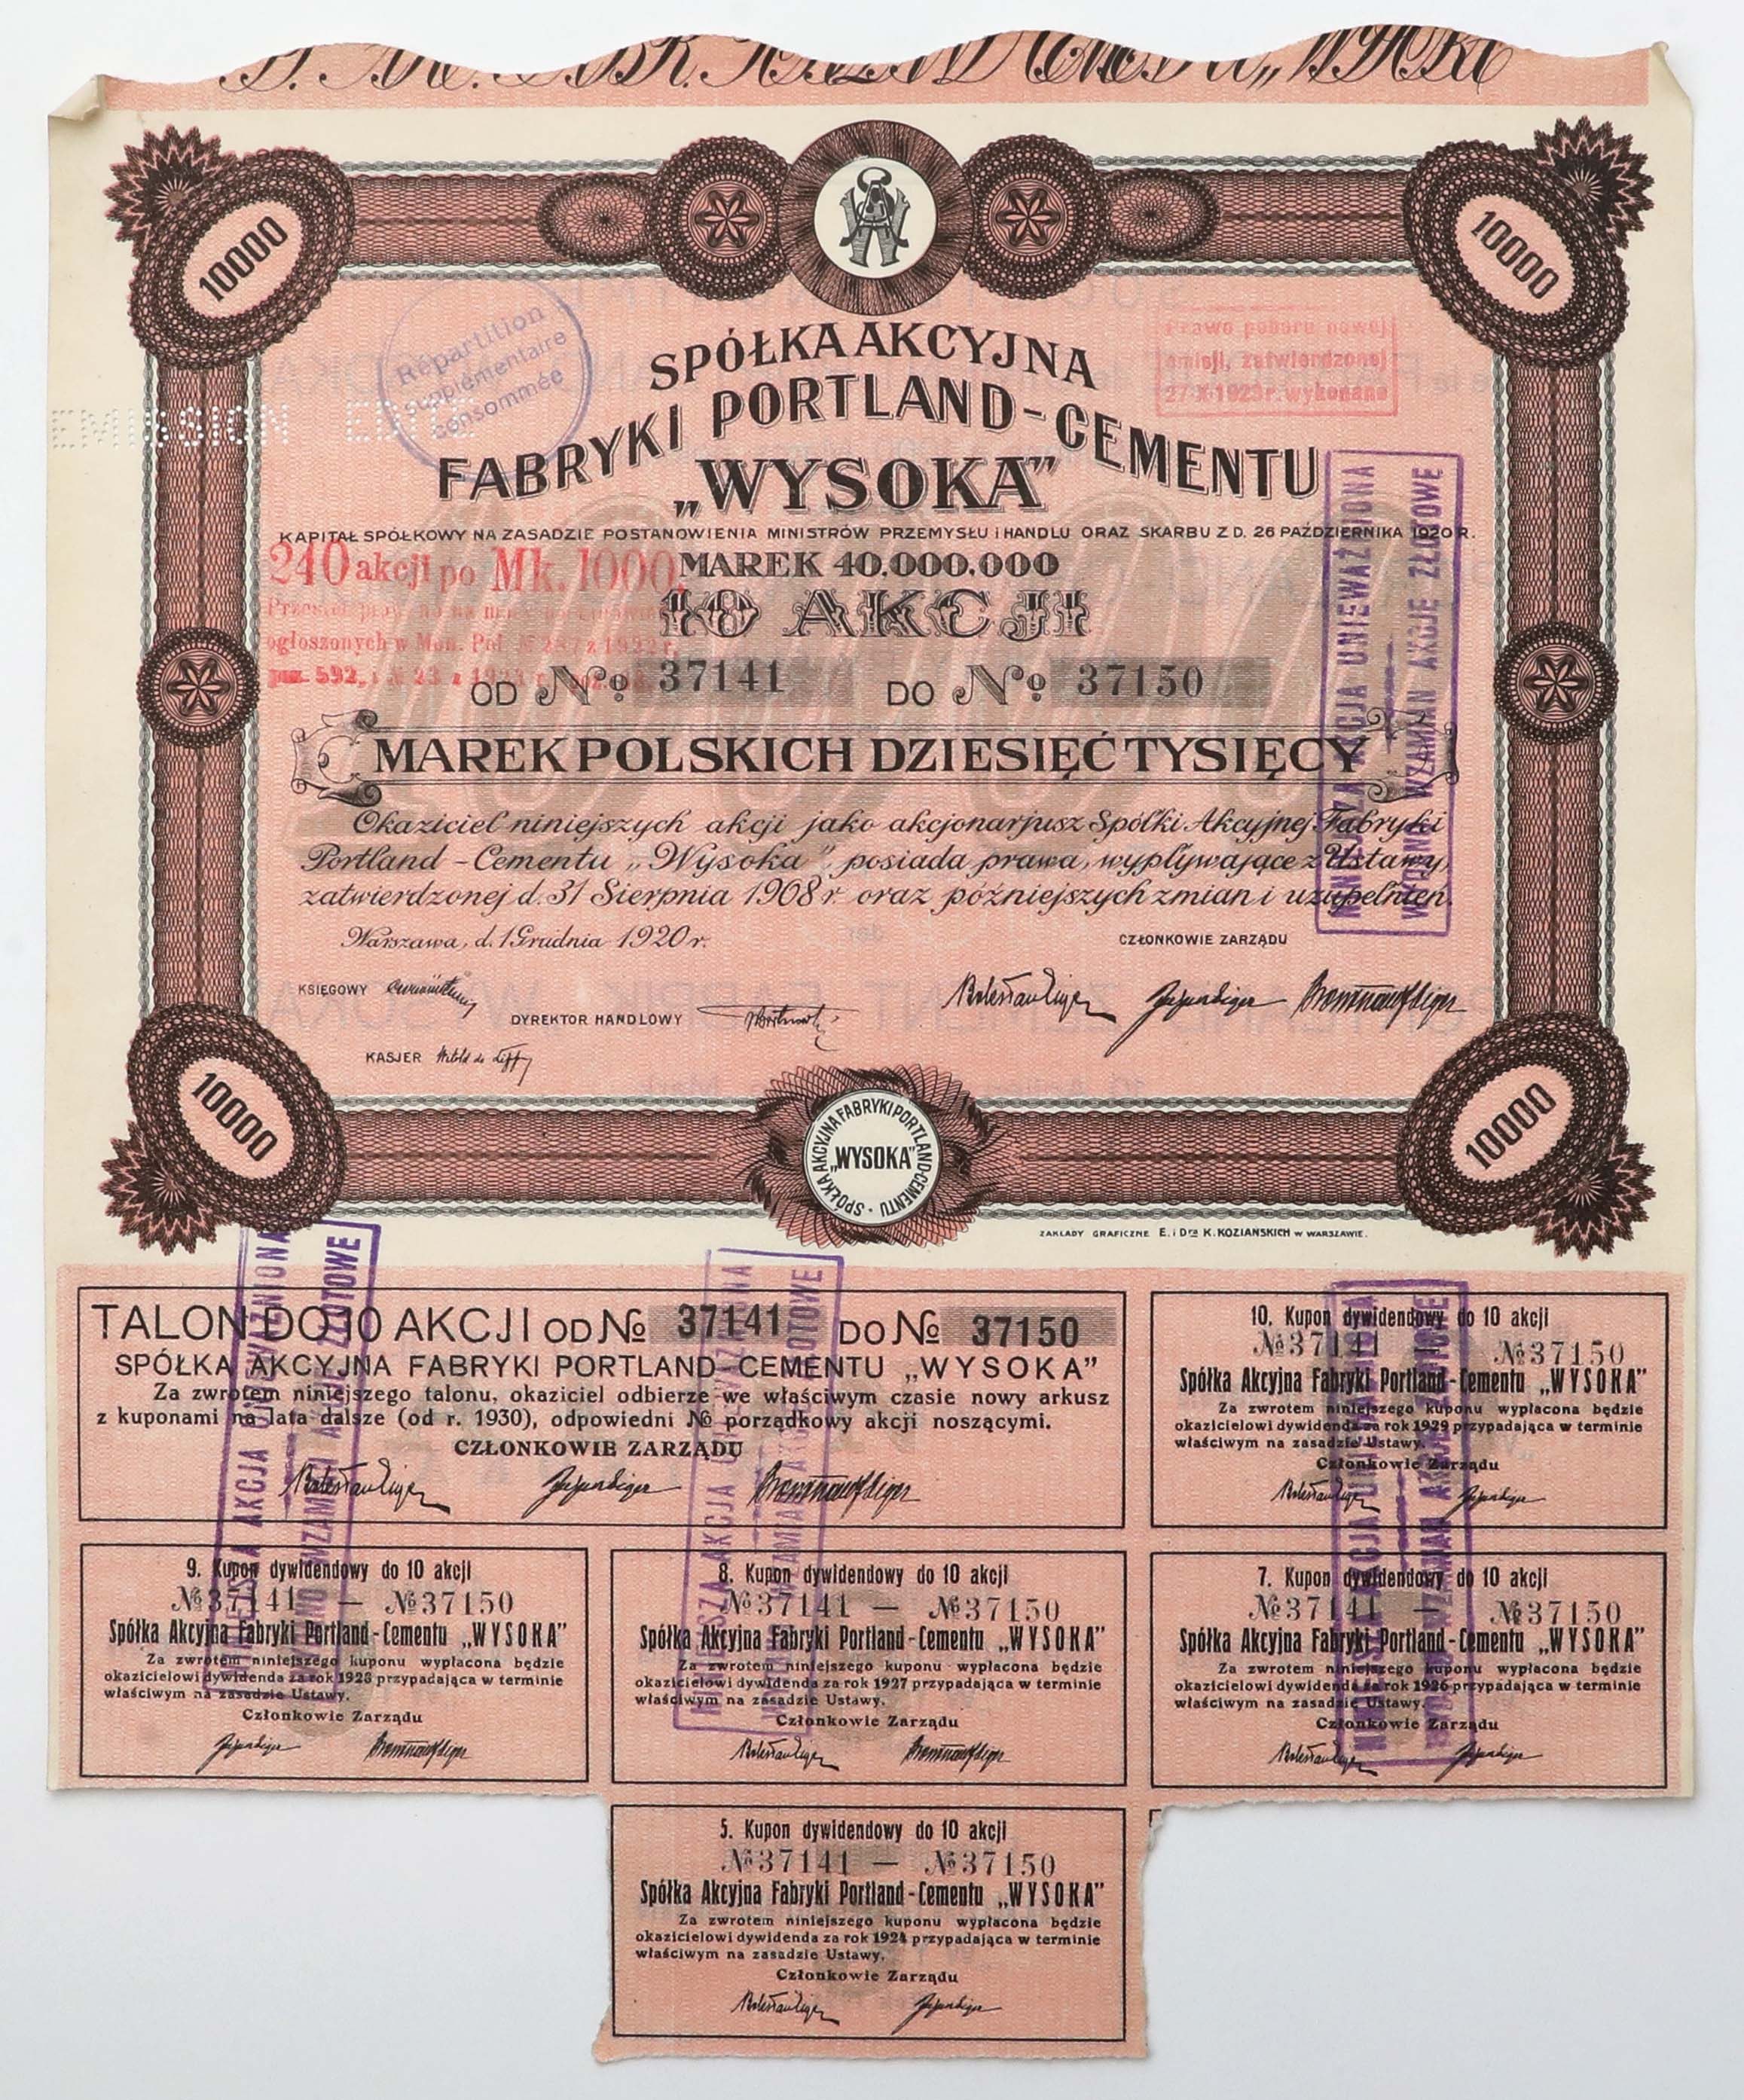 10000
10000
Répartition
supplémentaire
consommée
Prawo poboru nowej
emisji, zatwierdzonej
27·X·1923 r. wykonane
SPÓŁKA AKCYJNA
FABRYKI PORTLAND-CEMENTU
„WYSOKA"
KAPITAŁ SPÓŁKOWY NA ZASADZIE POSTANOWIENIA MINISTRÓW PRZEMYSŁU i HANDLU ORAZ SKARBU Z D. 26 PAŹDZIERNIKA 1920 R.
240 akcji po Mk. 1000,
MAREK 40.000.000
10 AKCJI
ogłoszonych w Mon. Pol. № 287 z 1922 r.
OD № 37141 DO № 37150
MAREK POLSKICH DZIESIĘĆ TYSIĘCY
Okaziciel niniejszych akcji jako akcjonarjusz Spółki Akcyjnej Fabryki
Portland-Cementu „Wysoka", posiada prawa, wypływające z Ustawy,
zatwierdzonej d. 31 Sierpnia 1908 r. oraz późniejszych zmian i uzupełnień.
Warszawa, d. 1 Grudnia 1920 r.
CZŁONKOWIE ZARZĄDU
KSIĘGOWY
DYREKTOR HANDLOWY
KASJER
NINIEJSZA AKCJA UNIEWAŻNIONA
WYDANO WZAMIAN AKCJE ZŁOTOWE
10000
10000
SPÓŁKA AKCYJNA FABRYKI PORTLAND-CEMENTU
„WYSOKA"
ZAKŁADY GRAFICZNE E. i Dra K. KOZIAŃSKICH w WARSZAWIE.
TALON DO 10 AKCJI OD № 37141 DO № 37150
SPÓŁKA AKCYJNA FABRYKI PORTLAND-CEMENTU „WYSOKA"
Za zwrotem niniejszego talonu, okaziciel odbierze we właściwym czasie nowy arkusz
z kuponami na lata dalsze (od r. 1930), odpowiedni № porządkowy akcji noszącymi.
CZŁONKOWIE ZARZĄDU
NINIEJSZA AKCJA UNIEWAŻNIONA
WYDANO WZAMIAN AKCJE ZŁOTOWE
NINIEJSZA AKCJA UNIEWAŻNIONA
WYDANO WZAMIAN AKCJE ZŁOTOWE
10. Kupon dywidendowy do 10 akcji
№ 37141 — № 37150
Spółka Akcyjna Fabryki Portland-Cementu „WYSOKA"
Za zwrotem niniejszego kuponu wypłacona będzie
okazicielowi dywidenda za rok 1929 przypadająca w terminie
właściwym na zasadzie Ustawy.
Członkowie Zarządu
NINIEJSZA AKCJA UNIEWAŻNIONA
WYDANO WZAMIAN AKCJE ZŁOTOWE
9. Kupon dywidendowy do 10 akcji
№ 37141 — № 37150
Spółka Akcyjna Fabryki Portland-Cementu „WYSOKA"
Za zwrotem niniejszego kuponu wypłacona będzie
okazicielowi dywidenda za rok 1928 przypadająca w terminie
właściwym na zasadzie Ustawy.
Członkowie Zarządu
8. Kupon dywidendowy do 10 akcji
№ 37141 — № 37150
Spółka Akcyjna Fabryki Portland-Cementu „WYSOKA"
Za zwrotem niniejszego kuponu wypłacona będzie
okazicielowi dywidenda za rok 1927 przypadająca w terminie
właściwym na zasadzie Ustawy.
Członkowie Zarządu
7. Kupon dywidendowy do 10 akcji
№ 37141 — № 37150
Spółka Akcyjna Fabryki Portland-Cementu „WYSOKA"
Za zwrotem niniejszego kuponu wypłacona będzie
okazicielowi dywidenda za rok 1926 przypadająca w terminie
właściwym na zasadzie Ustawy.
Członkowie Zarządu
5. Kupon dywidendowy do 10 akcji
№ 37141 — № 37150
Spółka Akcyjna Fabryki Portland-Cementu „WYSOKA"
Za zwrotem niniejszego kuponu wypłacona będzie
okazicielowi dywidenda za rok 1924 przypadająca w terminie
właściwym na zasadzie Ustawy.
Członkowie Zarządu